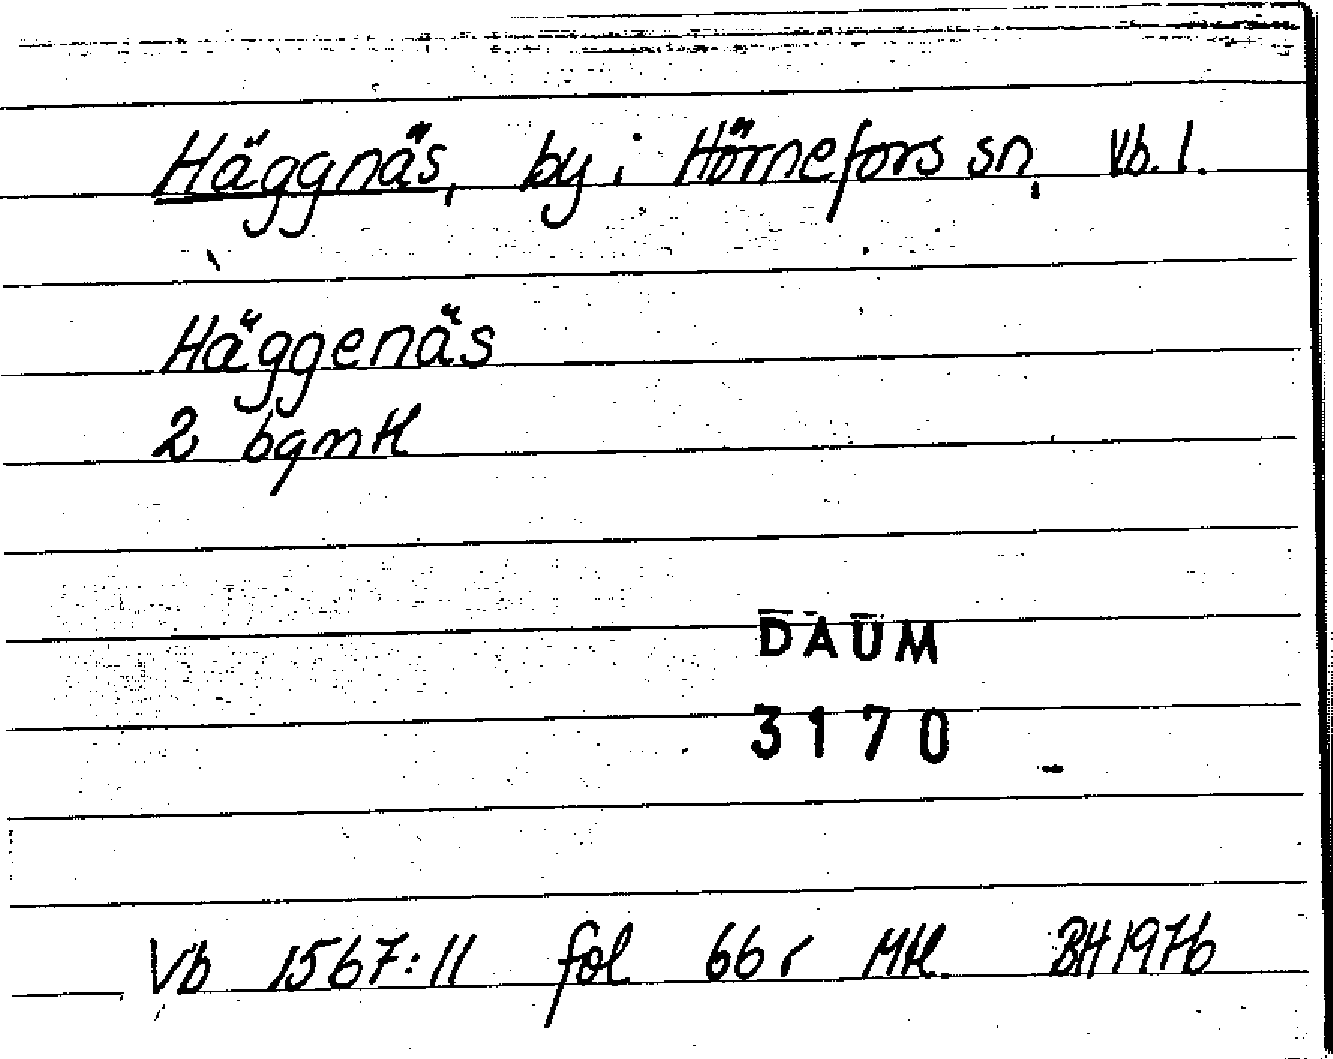 Häggnäs, by i Hörnefors sn, Vb. l.
Häggenäs
2 bgmtl
DAUM
3170
Vb 1567:11 fol 66 r Mtl BH 1976